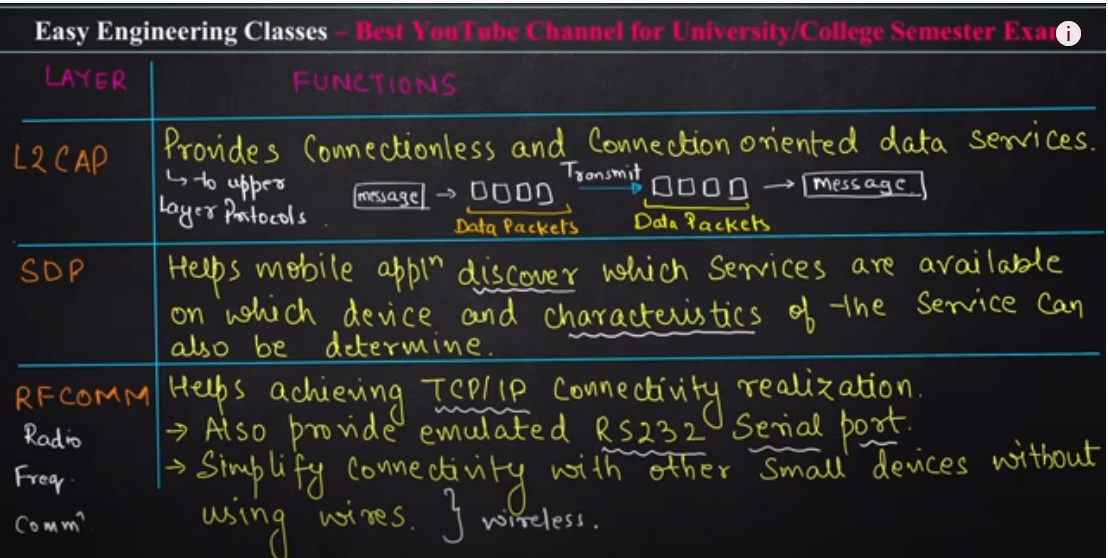 Easy Engineering Classes – Best YouTube Channel for University/College Semester Exa
LAYER FUNCTIONS
L2CAP Provides Connectionless and Connection oriented data services.
↳ to upper
Layer Protocols.
message → Transmit → Message
Data Packets Data Packets
SDP Helps mobile applⁿ discover which Services are available
on which device and characteristics of the Service Can
also be determine.
RFCOMM Helps achieving TCP/IP Connectivity realization.
Radio → Also provide emulated RS232 Serial port.
Freq. → Simplify Connectivity with other Small devices without
Commⁿ using wires. } wireless.